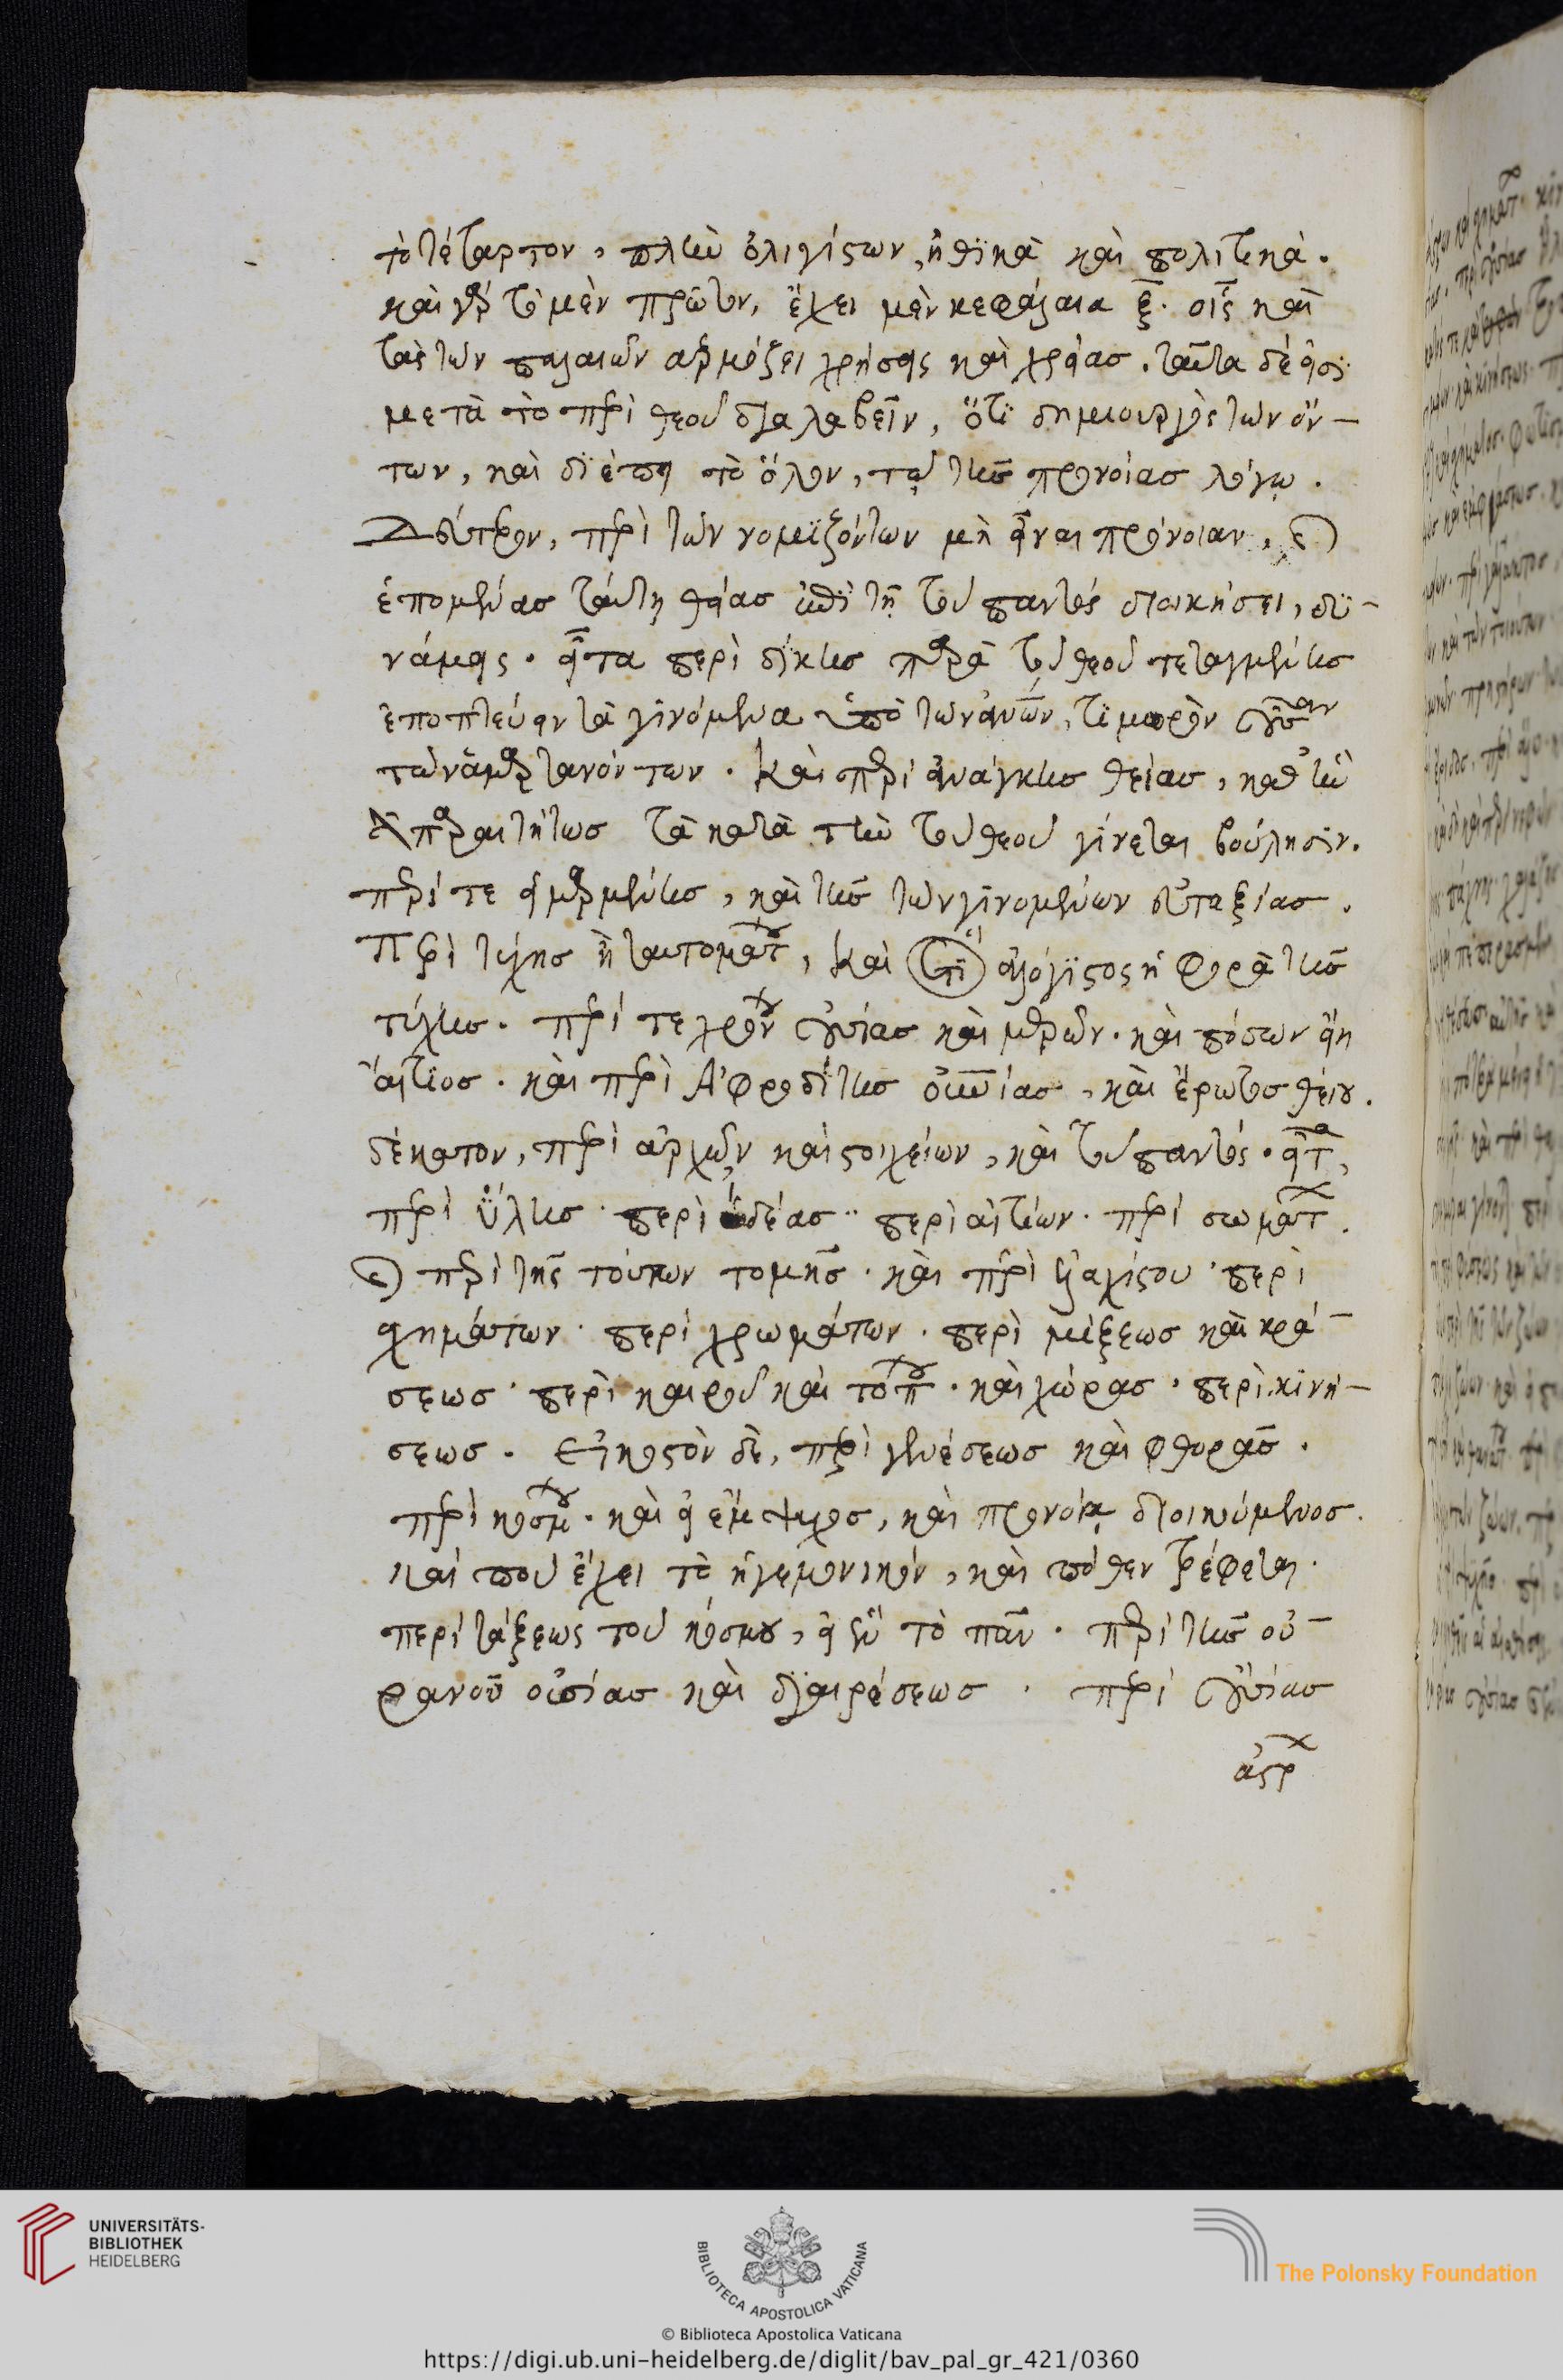 τὸ τέταρτον, πλὴν ὀλιγίστων, ἠθικὰ καὶ πολιτικὰ.
καὶ γὰρ τὸ μὲν πρῶτον, ἔχει μὲν κεφάλαια ξ̄. οἷς καὶ
τὰς τῶν παλαιῶν ἁρμόζει χρήσεις καὶ χρείας. ταῦτα δέ εἰσι
μετὰ τὸ περὶ θεοῦ διαλαβεῖν, ὅτι δημιουργὸς τῶν ὄν-
των, καὶ διέπει τὸ ὅλον, τῷ τῆς προνοίας λόγῳ.
Δεύτερον, περὶ τῶν νομιζόντων μὴ εἶναι πρόνοιαν,
ἑπομένας ταύτῃ θείας ἐπὶ τῇ τοῦ παντὸς διοικήσει, δυ-
νάμεις. εἶτα περὶ δίκης παρὰ τοῦ θεοῦ τεταγμένης
ἐποπτεύειν τὰ γινόμενα ὑπὸ τῶν ἀνων, τιμωρὸν οὖσαν
τῶν ἁμαρτανόντων. Καὶ περὶ ἀνάγκης θείας, καθ᾽ ἣν
ἀπαραιτήτως τὰ κατὰ τὴν τοῦ θεοῦ γίνεται βούλησιν.
περί τε εἱμαρμένης, καὶ τῆς τῶν γινομένων εὐταξίας.
Περὶ τύχης ἢ ταυτομάτου, καὶ ὅτι ἀλόγιστος ἡ φορὰ τῆς
τύχης. περί τε χρόνου οὐσίας καὶ μερῶν. καὶ πόσων εἴη
αἴτιος. καὶ περὶ Ἀφροδίτης οὐνίας, καὶ ἔρωτος θείου.
δέκατον, περὶ ἀρχῶν καὶ στοιχείων, καὶ τοῦ παντός. εἶτα,
περὶ ὕλης. περὶ ἰδέας. περὶ αἰτίων. περὶ σωμάτων.
περὶ τῆς τούτων τομῆς. καὶ περὶ ἐλαχίστου. περὶ
σχημάτων. περὶ χρωμάτων. περὶ μίξεως καὶ κρά-
σεως. περὶ καιροῦ καὶ τόπου. καὶ χώρας. περὶ κινή-
σεως. εἰκοστὸν δὲ, περὶ γενέσεως καὶ φθορᾶς.
περὶ κόσμου. καὶ εἰ ἔμψυχος, καὶ προνοίᾳ διοικούμενος.
καί που ἔχει τὸ ἡγεμονικόν, καὶ πόθεν τρέφεται.
περὶ τάξεως τοῦ κόσμου, εἰ ἓν τὸ πᾶν. περὶ τῆς οὐ-
ρανοῦ οὐσίας καὶ διαιρέσεως. περὶ οὐσίας
ἄστρων
UNIVERSITÄTS-
BIBLIOTHEK
HEIDELBERG
BIBLIOTECA APOSTOLICA VATICANA
The Polonsky Foundation
© Biblioteca Apostolica Vaticana
https://digi.ub.uni-heidelberg.de/diglit/bav_pal_gr_421/0360